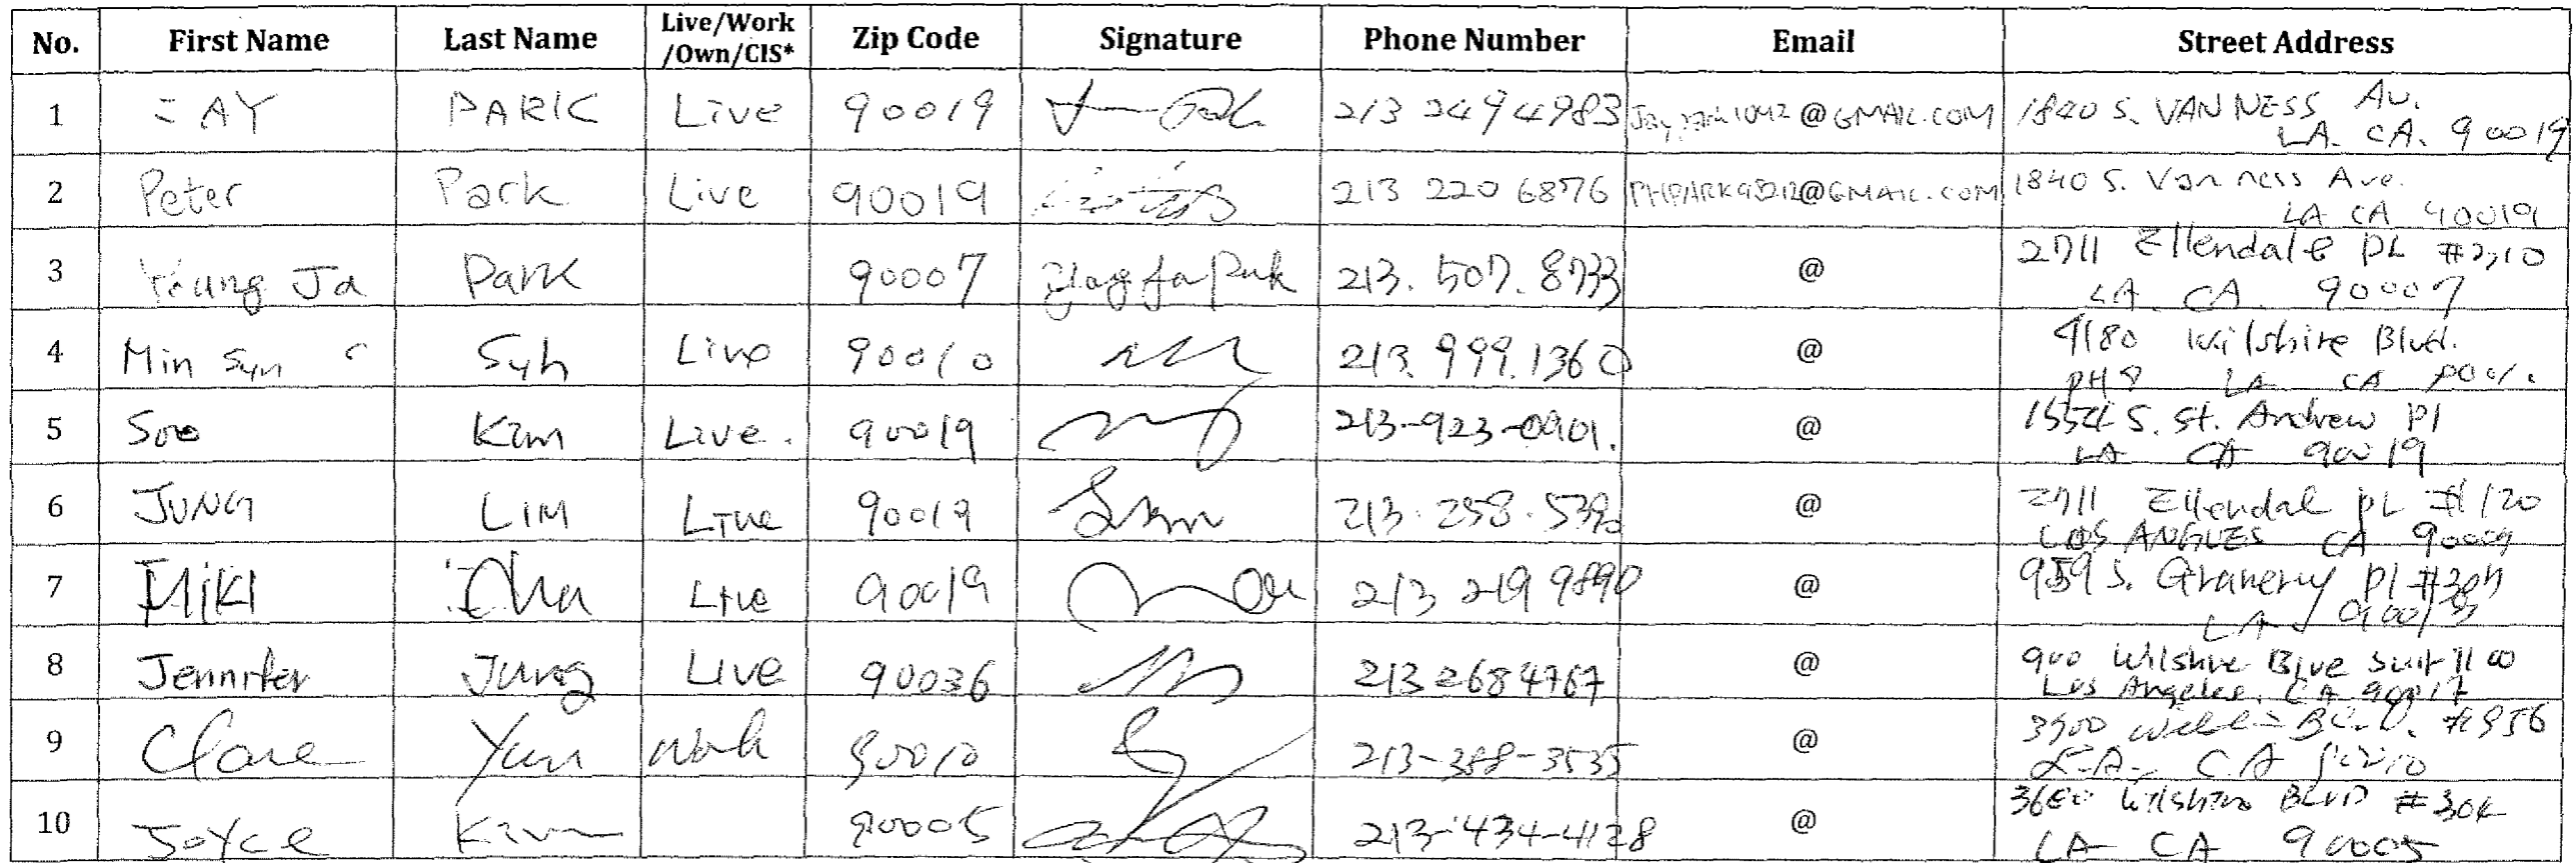 No. First Name Last Name Live/Work /Own/CIS* Zip Code Signature Phone Number Email Street Address
1 JAY PARK Live 90019 213 249 4983 @GMAIL.COM 1840 S. VAN NESS Av.
LA. CA. 90019
2 Peter Park Live 90019 213 220 6876 @GMAIL.COM 1840 S. Van ness Ave.
LA CA 90019
3 Young Ja Park 90007 213. 507. 8733 @ 2711 Ellendale PL #210
LA. CA. 90007
4 Min Syn Live 90010 213. 999. 1360 @ 4180 Wilshire Blvd.
PH 8 LA CA
5 Soo Kim Live. 90019 213-923-0901. @ 1554 S. St. Andrew Pl
LA CA 90019
6 JUNG LIM Live 90019 213. 258. @ 2711 Ellendal PL #120
LOS ANGLES CA
7 MIKI Cha Live 90019 213 219 9890 @ S. Pl
LA
8 Jennifer Jung Live 90036 213 268 4767 @ 900 Wilshire Blve Suit 1100
Los Angeles, CA 90017
9 Clare Yun Work 90010 213-388-3535 @ #956
L.A., CA
10 Joyce Kim 90005 213-434-4128 @ Wilshire BLVD #304
LA CA 90005